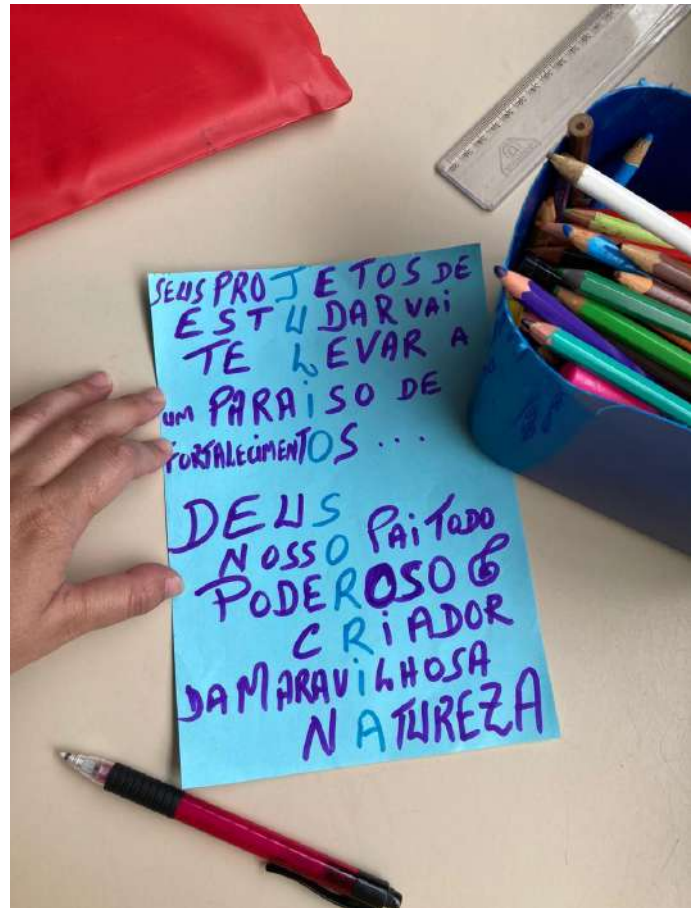 SEUS PROJETOS DE
ESTUDAR VAI
TE LEVAR A
UM PARAISO DE
FORTALECIMENTOS...
DEUS
NOSSO PAI TODO
PODEROSO E
CRIADOR
DA MARAVILHOSA
NATUREZA